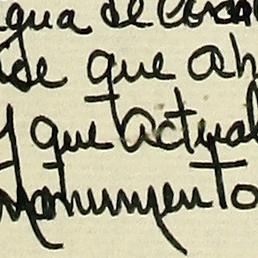 agua de
ide que ah
y que actual
monumento